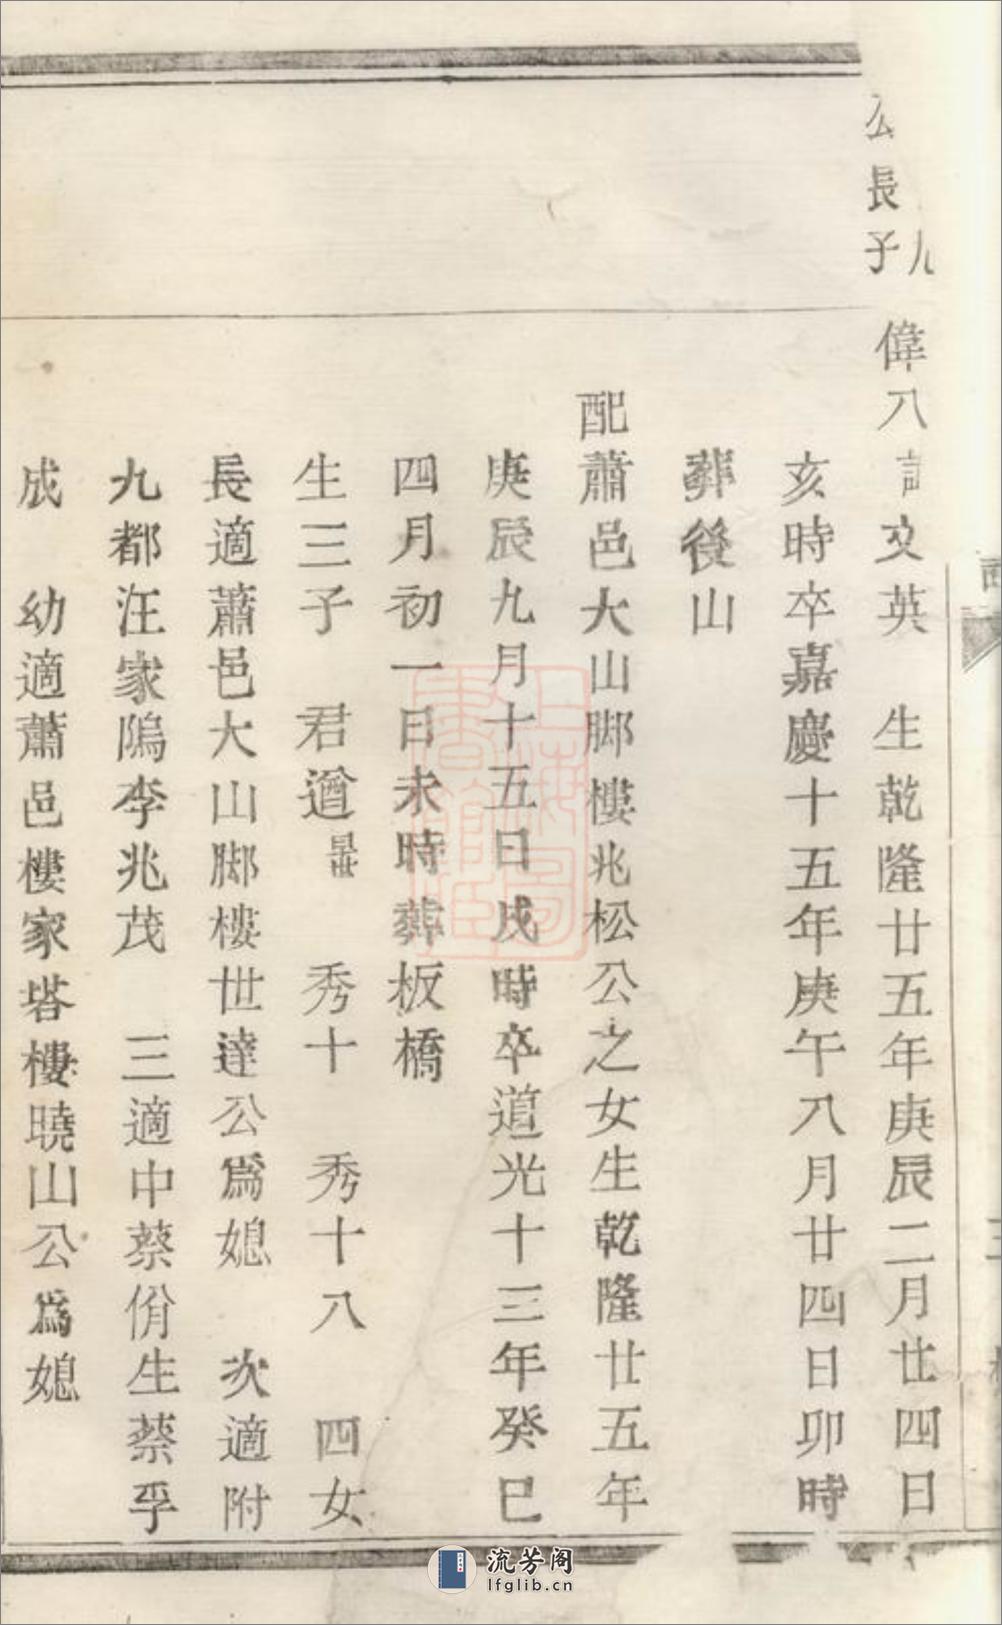 九
公長子
偉八 文英 生乾隆廿五年庚辰二月廿四日
亥時卒嘉慶十五年庚午八月廿四日卯時
葬後山
配蕭邑大山脚樓兆松公之女生乾隆廿五年
庚辰九月十五日戌時卒道光十三年癸巳
四月初一日未時葬板橋
生三子 君遒 秀十 秀十八 四女
長適蕭邑大山脚樓世達公為媳 次適附
九都汪家隝李兆茂 三適中蔡佾生蔡孚
成 幼適蕭邑樓家塔樓曉山公為媳
上海圖書館藏
流芳阁
lfglib.cn